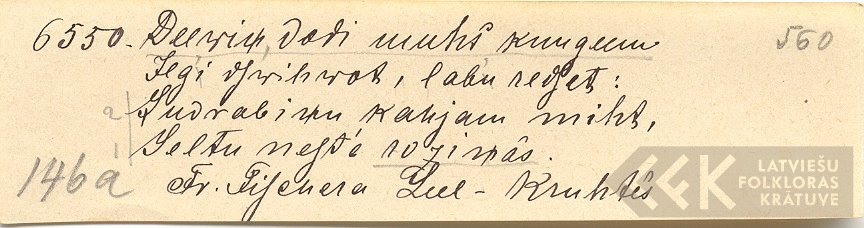 6550. Deewiņ, dodi muhs' kungeem 560
Ilgi dſihwot, labu redſet:
Sudrabiņu kahjam miht,
Seltu neſt roziņâs.
146a Fr. Fiſchera Leel-Kruhtês
LATVIEŠU
FOLKLORAS
KRĀTUVE